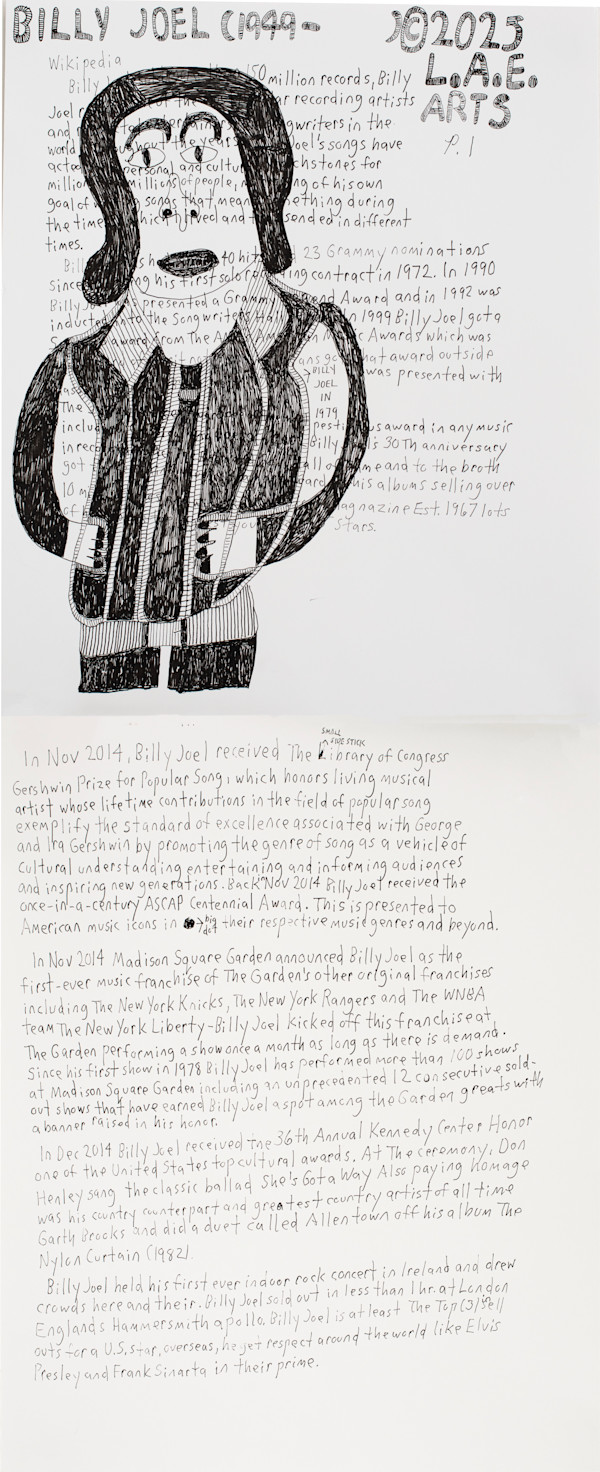 BILLY JOEL (1949- )©2025
L.A.E.
ARTS
P. 1
Wikipedia
Billy 150 million records, Billy
Joel r the r recording artists
and gwriters in the
world hout the years oel's songs have
acted personal and cultu chstones for
million millions of people, ng of his own
goal of songs that mean ething during
the time which lived and t sended in different
times.
Bill h 40 hits d 23 Grammy nominations
since ng his first solo r ing contract in 1972. In 1990
Billy J s presented a Grammy end Award and in 1992 was
inducted into the Songwriters Hall n 1999 Billy Joel got a
award from The A n Awards which was
ans go hat award outside
was presented with
BILLY
JOEL
IN
1979
The
inclu pesti us award in any music
in reco Billy l's 30Th anniversary
got all of me and to the broth
10 m ard his albums selling over
of agnazine Est. 1967 lots
you Stars.
SMALL
SIDE STICK
In Nov 2014, Billy Joel received The Library of Congress
Gershwin Prize for Popular Song, which honors living musical
artist whose lifetime contributions in the field of popular song
exemplify the standard of excellence associated with George
and Ira Gershwin by promoting the genre of song as a vehicle of
cultural understanding entertaining and informing audiences
and inspiring new generations. Back Nov 2014 Billy Joel received the
once-in-a-century ASCAP Centennial Award. This is presented to
American music icons in → big dot their respective music genres and beyond.
In Nov 2014 Madison Square Garden announced Billy Joel as the
first-ever music franchise of The Garden's other original franchises
including The New York Knicks, The New York Rangers and The WNBA
team The New York Liberty-Billy Joel kicked off this franchise at
The Garden performing a show once a month as long as there is demand.
Since his first show in 1978 Billy Joel has performed more than 100 shows
at Madison Square Garden including an unprecedented 12 consecutive sold-
out shows that have earned Billy Joel a spot among the Garden greats with
a banner raised in his honor.
In Dec 2014 Billy Joel received the 36th Annual Kennedy Center Honor
one of the United States top cultural awards. At The ceremony, Don
Henley sang the classic ballad She's Got a Way Also paying homage
was his country counterpart and greatest country artist of all time
Garth Brooks and did a duet called Allentown off his album The
Nylon Curtain (1982).
Billy Joel held his first ever indoor rock concert in Ireland and drew
crowds here and their. Billy Joel sold out in less than 1 hr. at London
Englands Hammersmith apollo. Billy Joel is at least The Top (3) Sell
outs for a U.S. star, overseas, he get respect around the world like Elvis
Presley and Frank Sinarta in their prime.